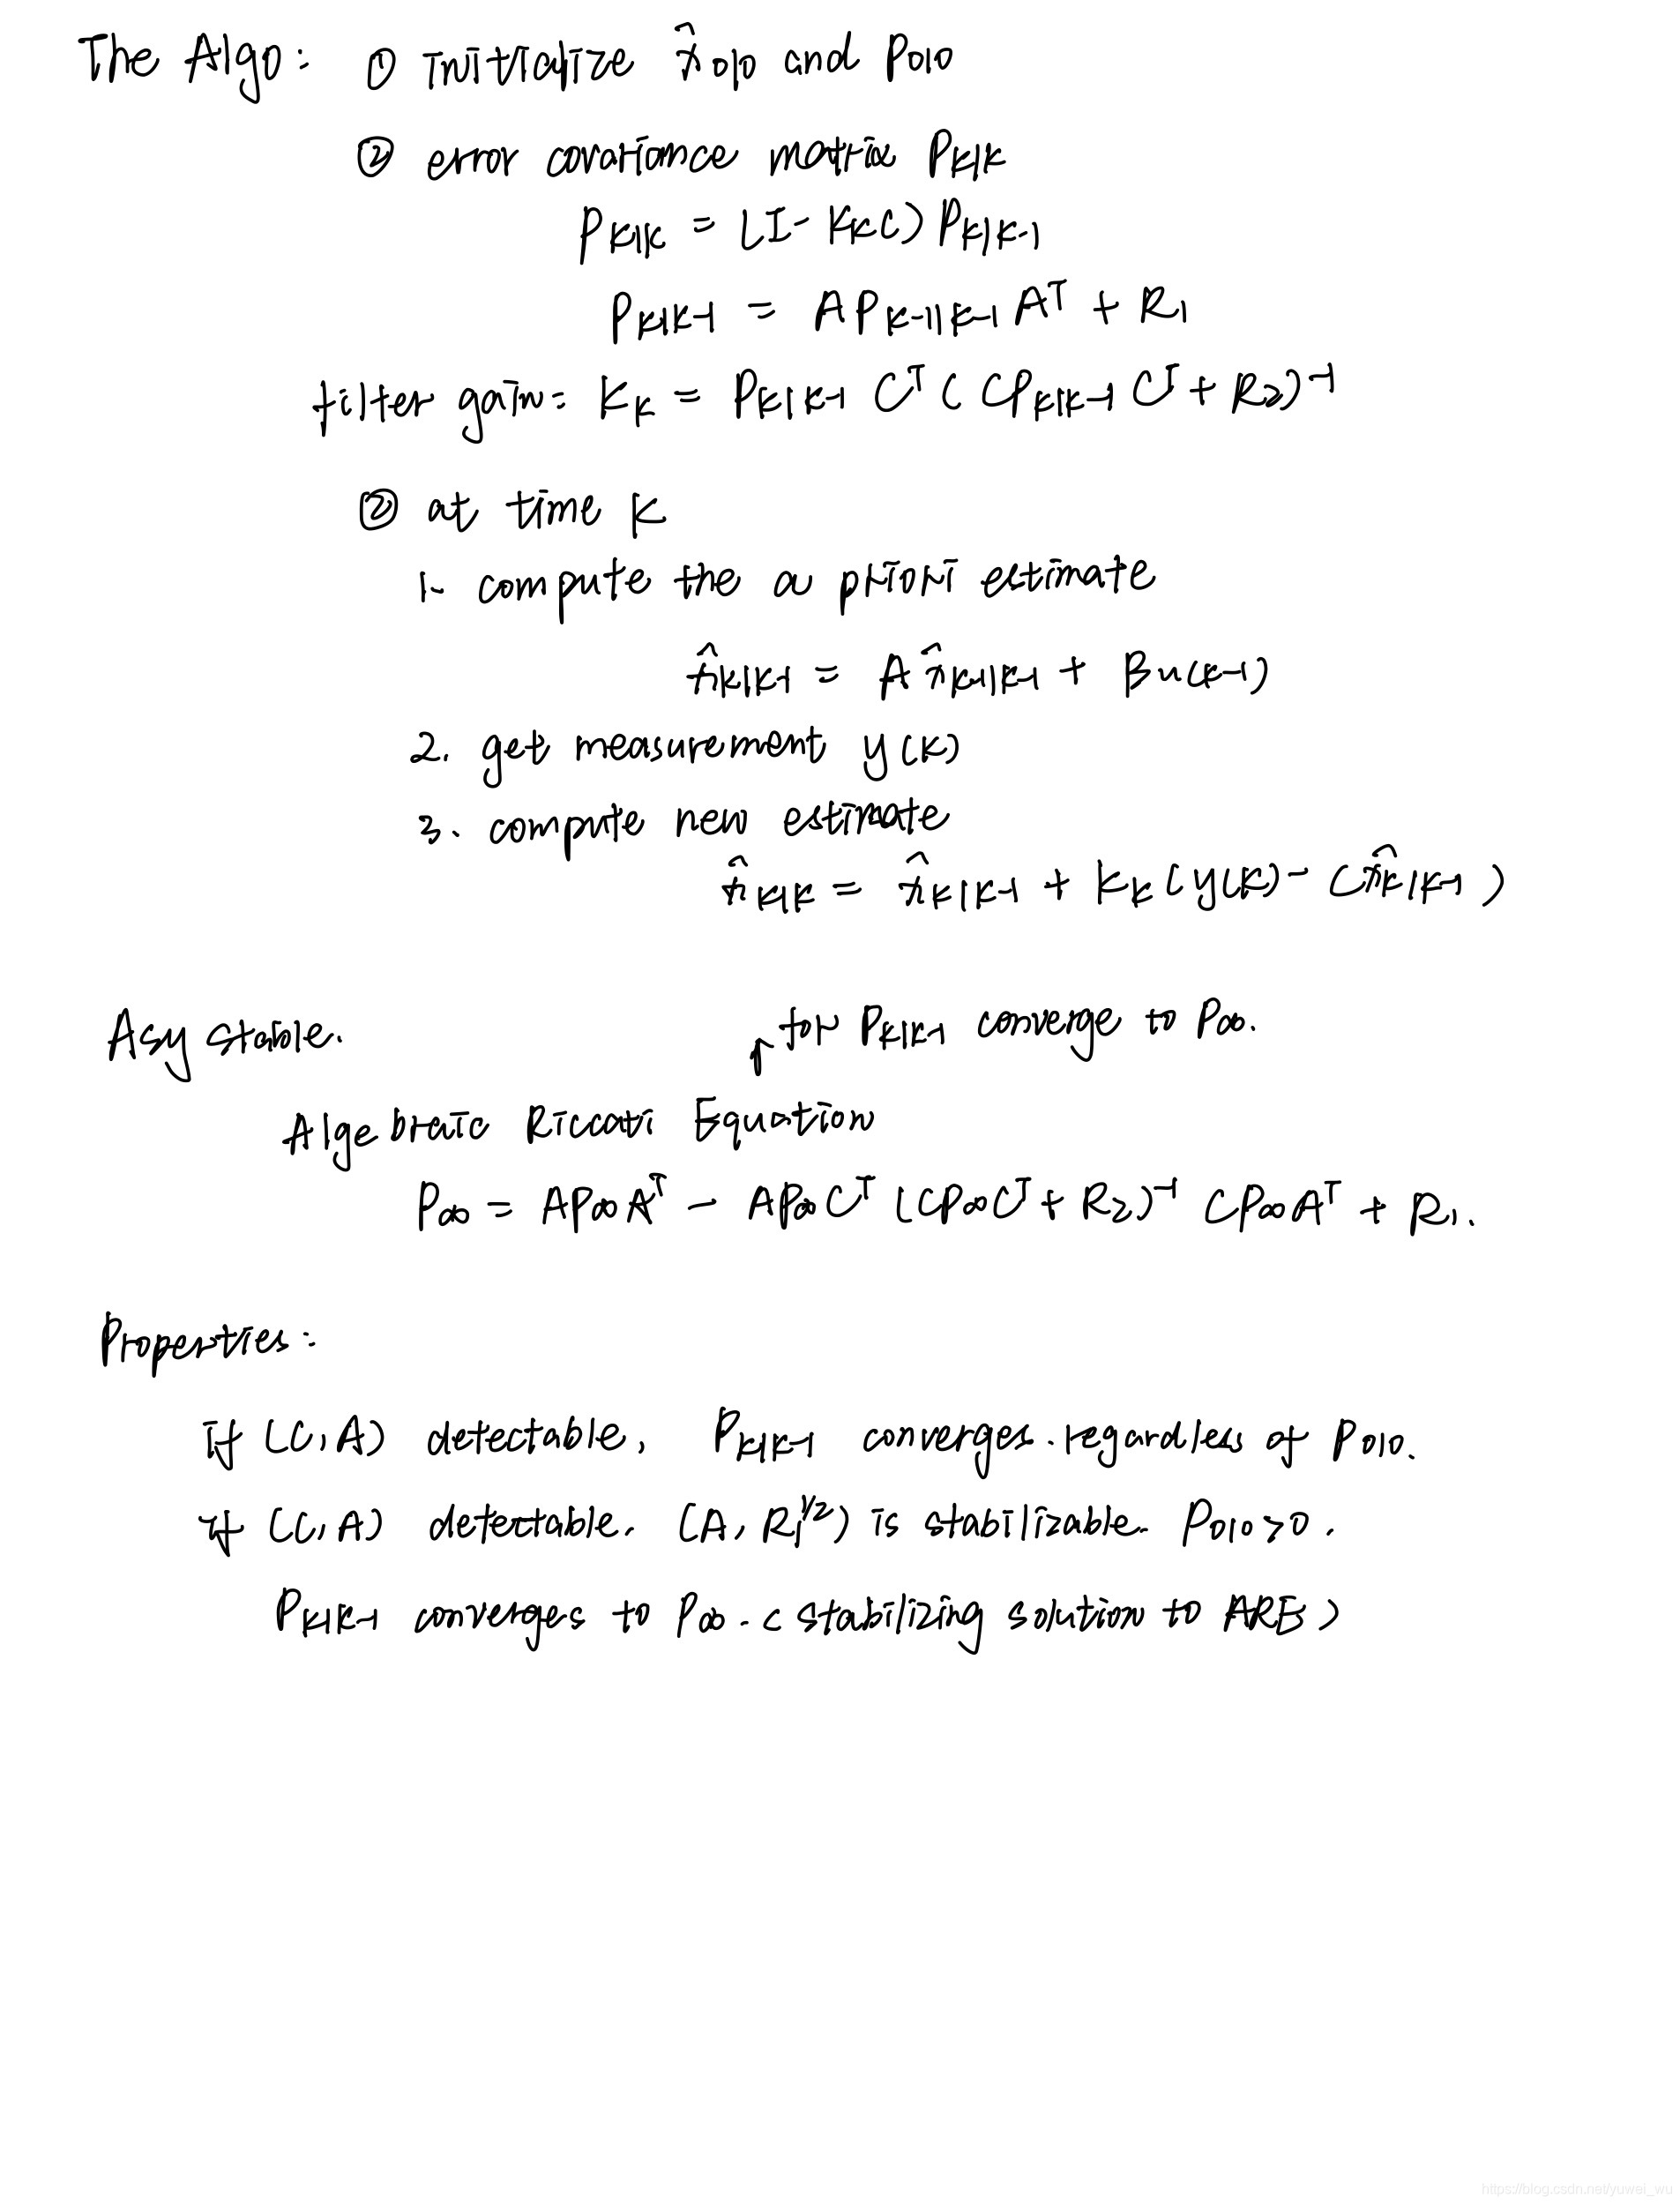 The Algo: ① initialize x̂₀|₀ and P₀|₀
② error covariance matrix P_k|k
P_k|k = (I - K_k C) P_k|k-1
P_k|k-1 = A P_k-1|k-1 Aᵀ + R₁
filter gain: K_k = P_k|k-1 Cᵀ ( C P_k|k-1 Cᵀ + R₂)⁻¹
② at time k
1. compute the a priori estimate
x̂_k|k-1 = A x̂_k-1|k-1 + Bu(k-1)
2. get measurement y(k)
3. compute new estimate
x̂_k|k = x̂_k|k-1 + K_k (y(k) - C x̂_k|k-1 )
Asy stable.
↱ for P_k|k-1 converge to P∞.
Algebraic Riccati Equation
P∞ = A P∞ Aᵀ - A P∞ Cᵀ (C P∞ Cᵀ + R₂)⁻¹ C P∞ Aᵀ + R₁.
Properties:
if (C, A) detectable, P_k|k-1 converges. regardless of P₀|₀.
if (C, A) detectable. (A, R₁^1/2) is stabilizable. P₀|₀ > 0.
P_k|k-1 converges to P∞. ( stabilizing solution to ARE )
https://blog.csdn.net/yuwei_wu